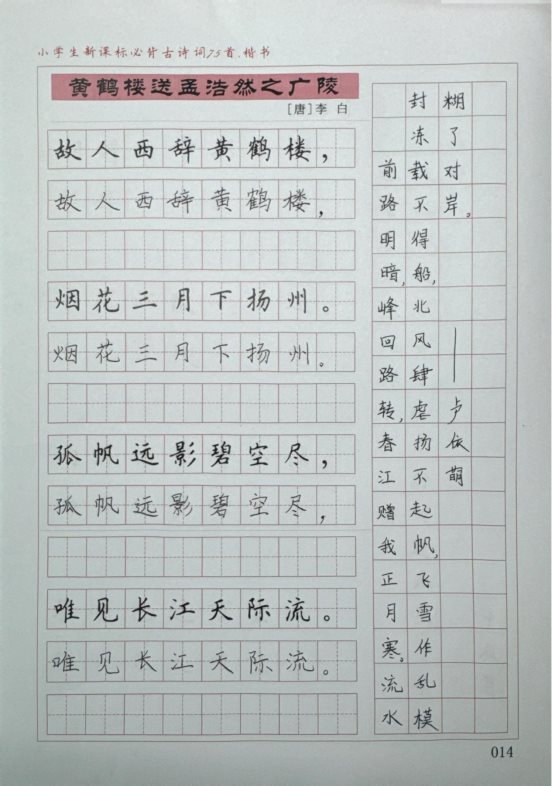 小学生新课标必背古诗词75首.楷书
黄鹤楼送孟浩然之广陵
[唐]李 白
故人西辞黄鹤楼，
故人西辞黄鹤楼，
烟花三月下扬州。
烟花三月下扬州。
孤帆远影碧空尽，
孤帆远影碧空尽，
唯见长江天际流。
唯见长江天际流。
前路明暗，峰回路转，春江赠我正月寒。流水
封冻载不得船，北风肆虐扬不起帆，飞雪作乱模
糊了对岸。——卢依萌
014